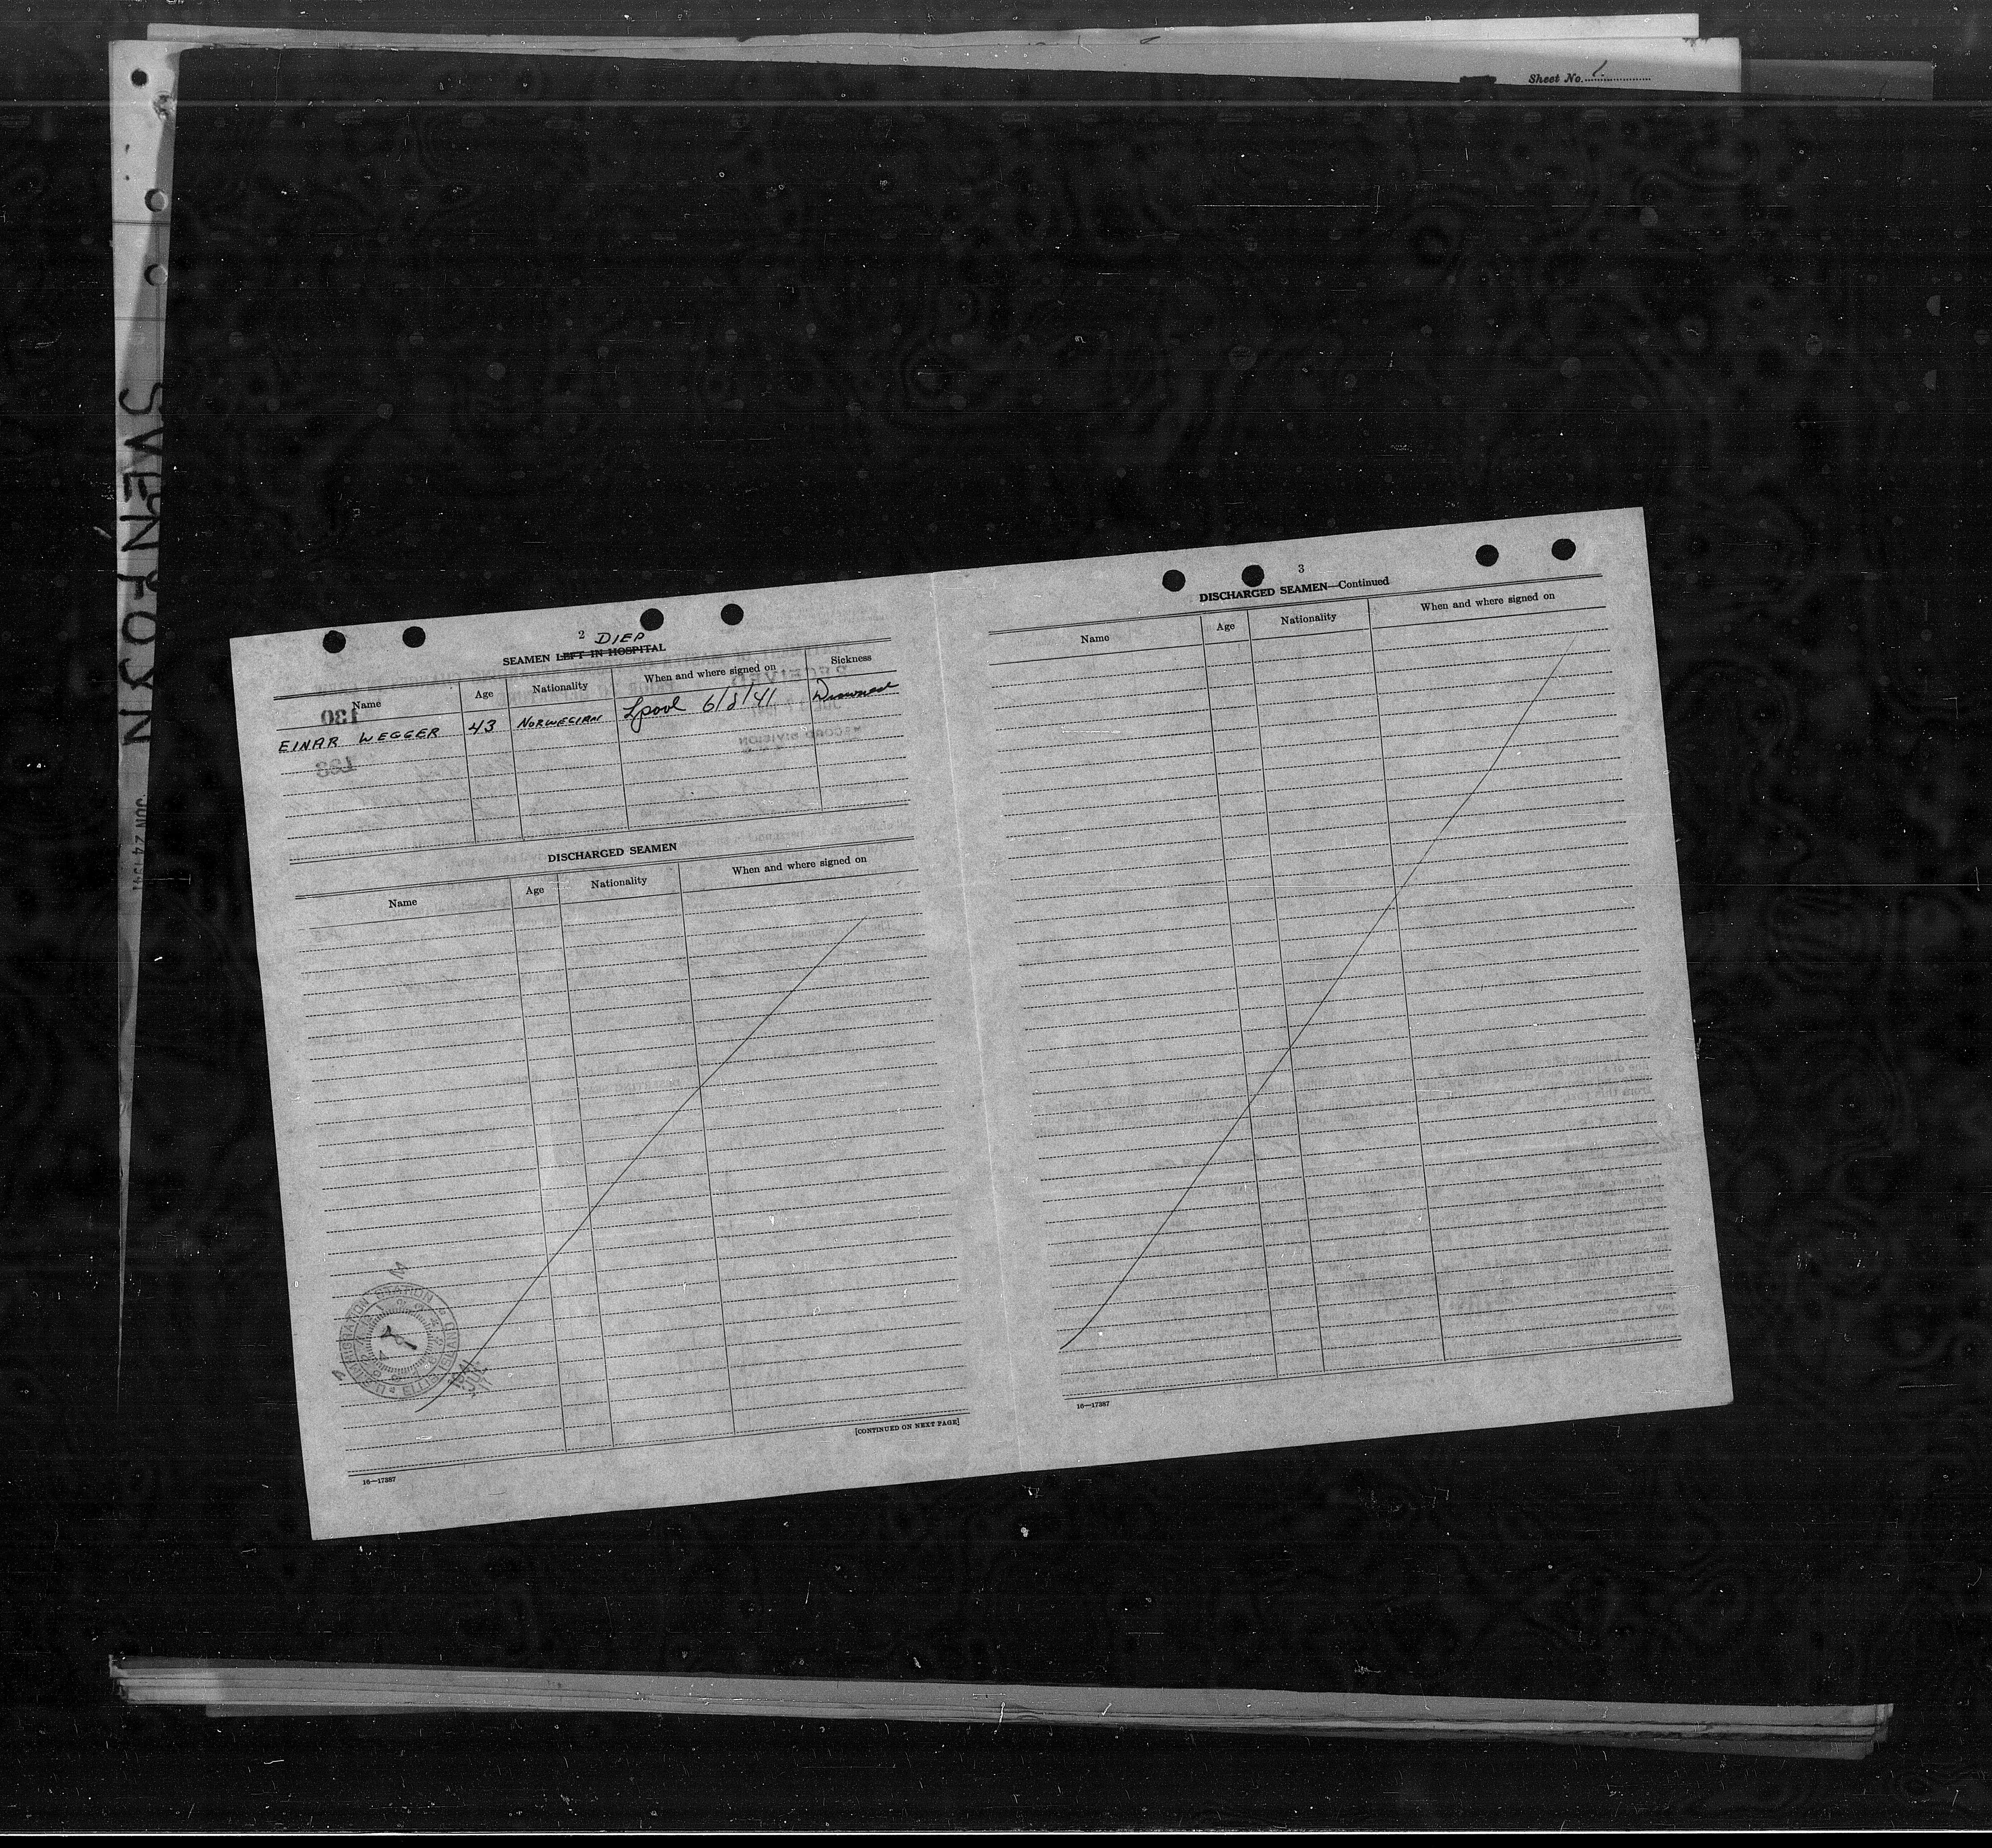 Sheet No. 1.
SVEN FOJN
JUN 24 1941
2
DIED
SEAMEN LEFT IN HOSPITAL
Name Age Nationality When and where signed on Sickness
130
EINAR WEGGER 43 NORWEGIAN Lpool 6/2/41 Drowned
RECORD DIVISION
DISCHARGED SEAMEN
Name Age Nationality When and where signed on
U.S. IMMIGRATION STATION * ELLIS ISLAND
[CONTINUED ON NEXT PAGE]
16—17387
3
DISCHARGED SEAMEN—Continued
Name Age Nationality When and where signed on
16—17387